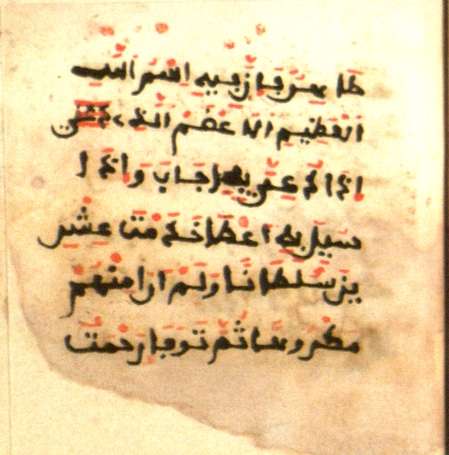 فان فيه اسم الله
العظيم الاعظم الذي
اذا دعي به اجاب واذا
سيل به اعطا خدمت عشر
ين سلطانا ولم ار منهم
مكروها ثم توفا رحمت